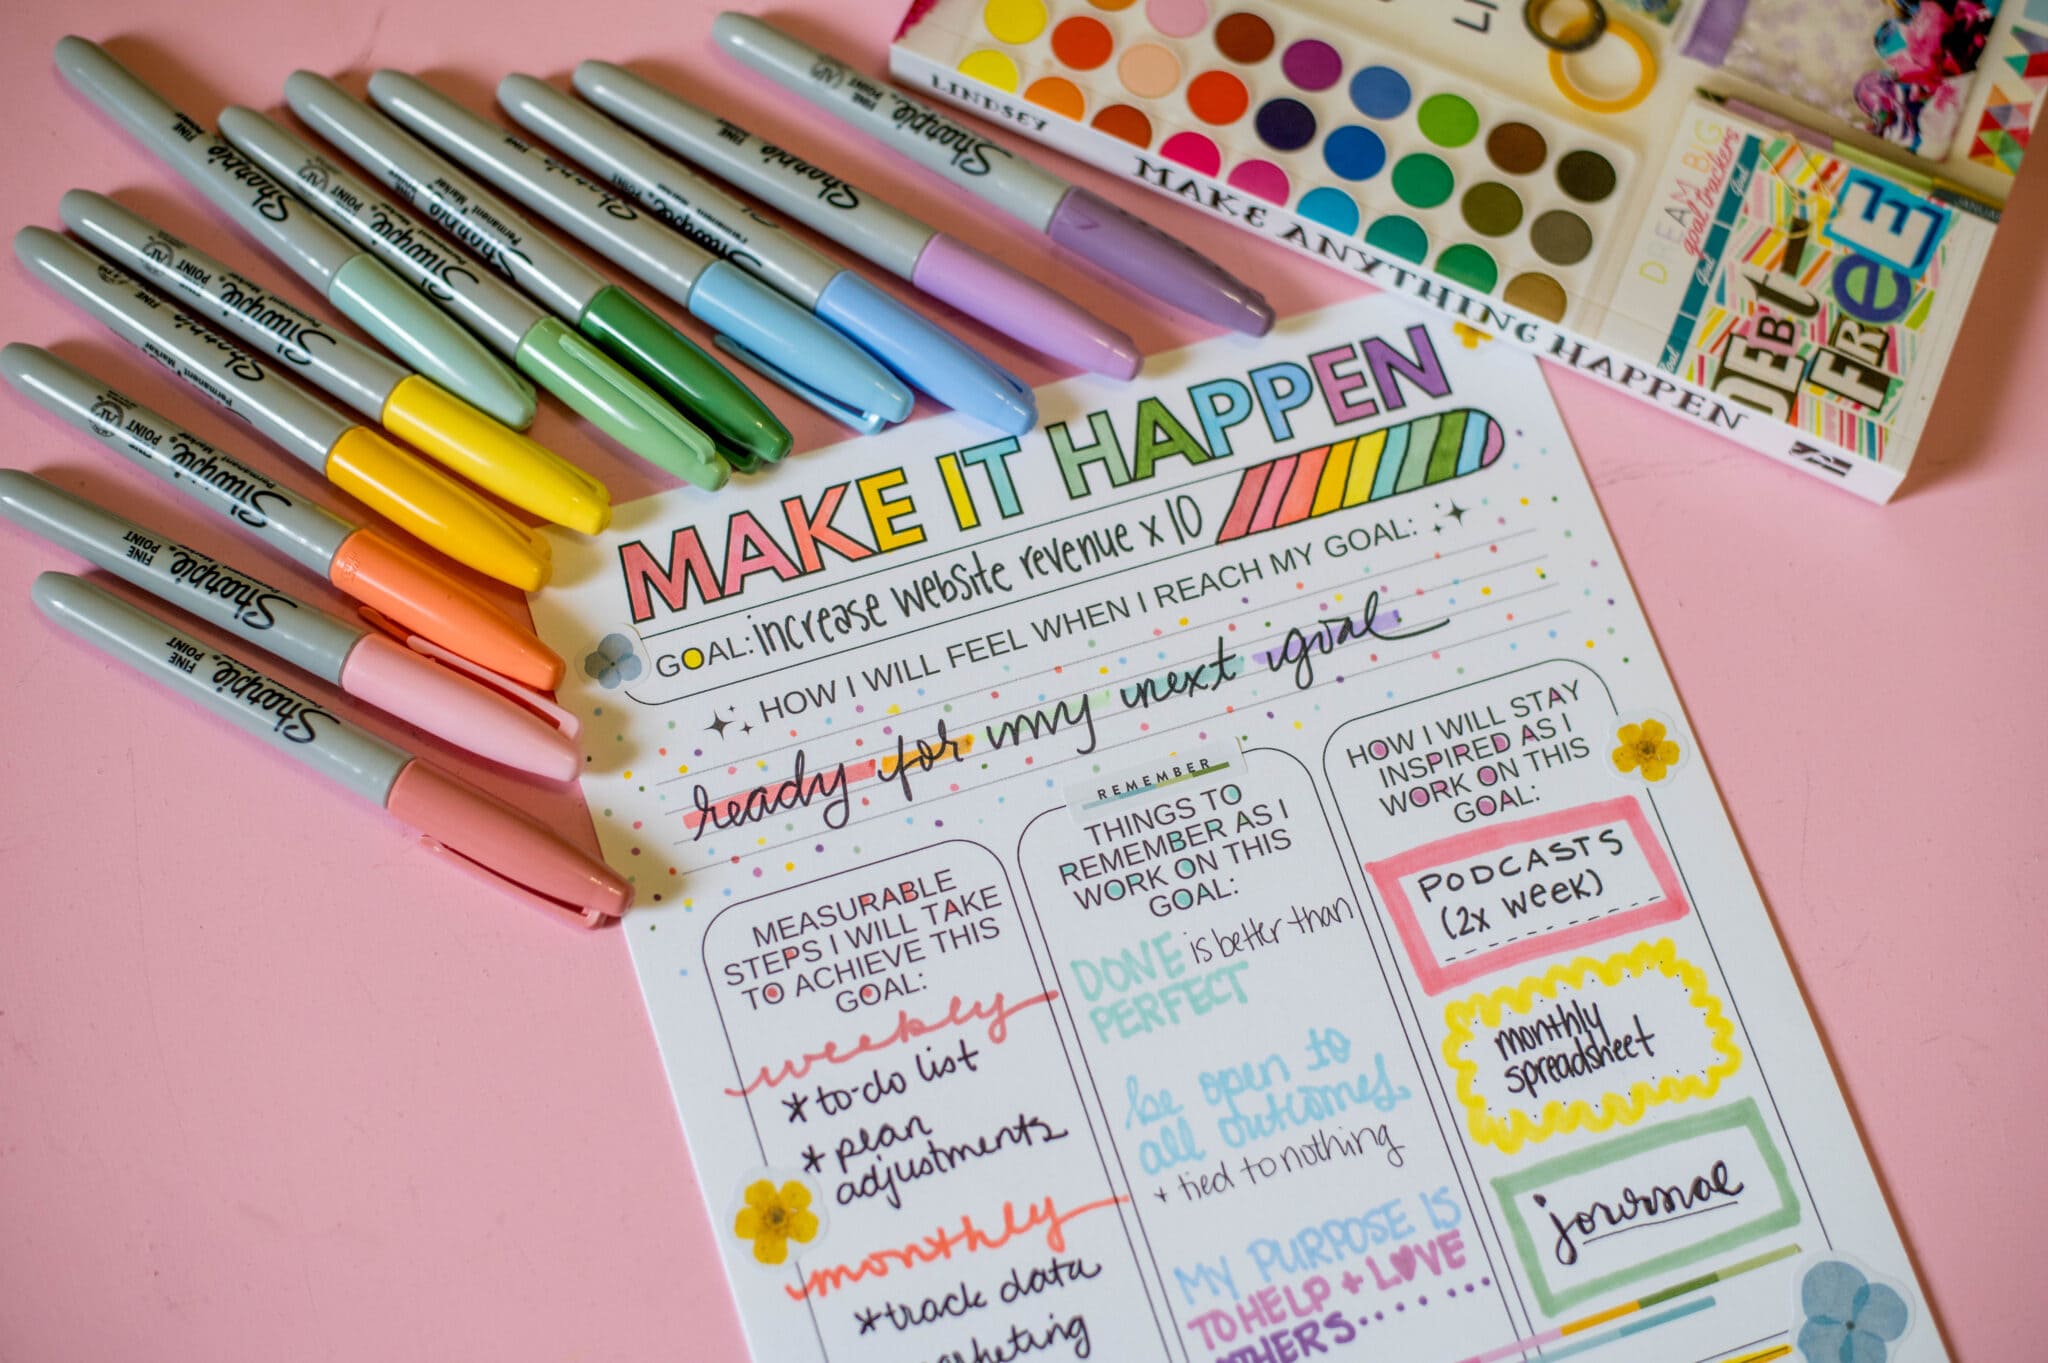 Sharpie
FINE
POINT
Sharpie
FINE
POINT
Sharpie
FINE
POINT
Sharpie
Permanent Marker
Sharpie
FINE
POINT
Sharpie
FINE
POINT
Sharpie
FINE
POINT
Sharpie
Permanent Marker
Sharpie
Sharpie
Sharpie
FINE
Sharpie
FINE
POINT
LINDSEY
MAKE ANYTHING HAPPEN
DREAM BIG
goal trackers
goal
goal
goal
DEBT
FREE
JANUARY
MAKE IT HAPPEN
GOAL: increase website revenue x 10
HOW I WILL FEEL WHEN I REACH MY GOAL:
ready for my next goal
MEASURABLE
STEPS I WILL TAKE
TO ACHIEVE THIS
GOAL:
weekly
*to-do list
*plan
adjustments
monthly
*track data
REMEMBER
THINGS TO
REMEMBER AS I
WORK ON THIS
GOAL:
DONE is better than
PERFECT
be open to
all outcomes
+ tied to nothing
MY PURPOSE IS
TO HELP + LOVE
OTHERS......
HOW I WILL STAY
INSPIRED AS I
WORK ON THIS
GOAL:
PODCASTS
(2x week)
monthly
spreadsheet
journal